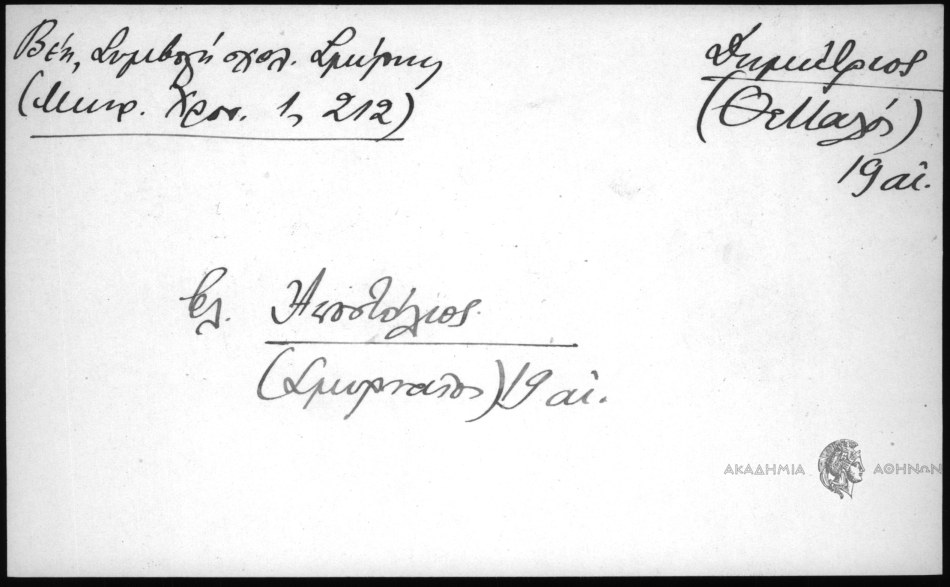 Βέη, Συμβολή σχολ. Σμύρνης
(Μικρ. Χρον. 1, 212)
Δημήτριος
(Θεσσαλός)
19 αἰ.
βλ. Ἀποστόλιος
(Σμυρναῖος) 19 αἰ.
ΑΚΑΔΗΜΙΑ ΑΘΗΝΩΝ